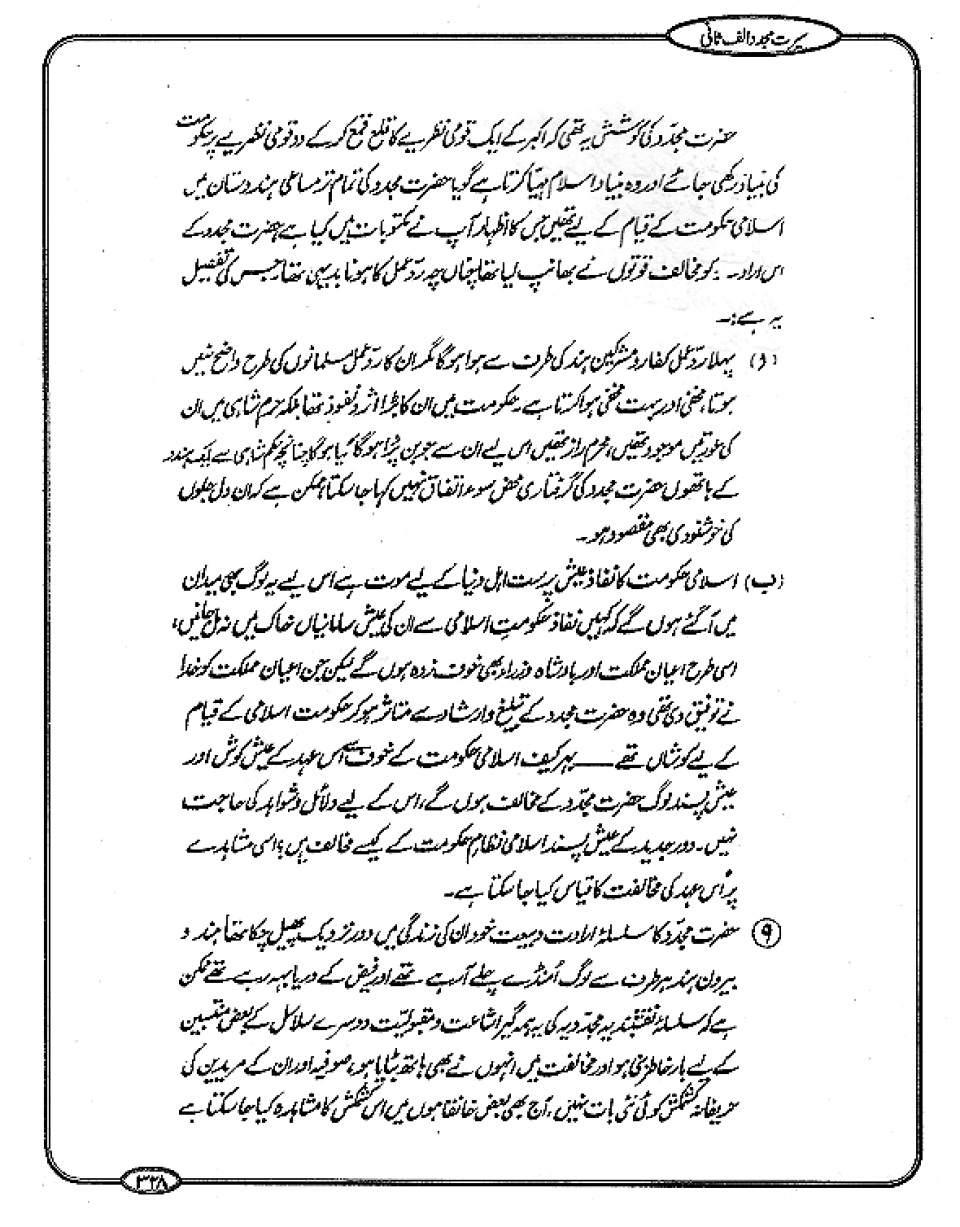 سیرت مجدد الف ثانی
حضرت مجدّد کی کوشش یہ تھی کہ اکبر کے ایک قومی نظریے کا قلع قمع کر کے دو قومی نظریے پر حکومت
کی بنیاد رکھی جائے اور وہ بنیاد اسلام مہیّا کرتا ہے گویا حضرت مجدد کی تمام تر مساعی ہندوستان میں
اسلامی حکومت کے قیام کے لیے تھیں جس کا اظہار آپ نے مکتوبات میں کیا ہے حضرت مجدد کے
اس ارادے کو مخالف قوتوں نے بھانپ لیا تھا چناں چہ ردّ عمل کا ہونا بدیہی تھا جس کی تفصیل
یہ ہے :۔
(ا) پہلا ردّ عمل کفار و مشرکین ہند کی طرف سے ہوا ہوگا مگر ان کا ردّ عمل مسلمانوں کی طرح واضح نہیں
ہوتا، مخفی اور بہت مخفی ہوا کرتا ہے ۔ حکومت میں ان کا بڑا اثر و نفوذ تھا بلکہ حرم شاہی میں ان
کی عورتیں موجود تھیں، محرم راز تھیں اس لیے ان سے جو بن پڑا ہوگا کیا ہوگا چنانچہ حکم شاہی سے ایک ہندو
کے ہاتھوں حضرت مجدد کی گرفتاری محض سوء اتفاق نہیں کہا جا سکتا ممکن ہے کہ ان دل جلوں
کی خوشنودی بھی مقصود ہو ۔
(ب) اسلامی حکومت کا نفاذ عیش پرست اہل دنیا کے لیے موت ہے اس لیے یہ لوگ بھی میدان
میں آ گئے ہوں گے کہ کہیں نفاذ حکومت اسلامی سے ان کی عیش سامانیاں خاک میں نہ مل جائیں،
اسی طرح اعیان مملکت اور بادشاہ وزراء بھی خوف زدہ ہوں گے لیکن جن اعیان مملکت کو خدا
نے توفیق دی تھی وہ حضرت مجدد کے تبلیغ و ارشاد سے متاثر ہو کر حکومت اسلامی کے قیام
کے لیے کوشاں تھے ــــ بہر کیف اسلامی حکومت کے خوف سے اُس عہد کے عیش کوش اور
عیش پسند لوگ حضرت مجدّد کے مخالف ہوں گے، اس کے لیے دلائل و شواہد کی حاجت
نہیں ۔ دور جدید کے عیش پسند اسلامی نظام حکومت کے کیسے مخالف ہیں ؟ اسی مشاہدے
پر اُس عہد کی مخالفت کا قیاس کیا جا سکتا ہے ۔
(۹) حضرت مجدّد کا سلسلۂ ارادت و بیعت خود ان کی زندگی میں دور نزدیک پھیل چکا تھا ہند و
بیرون ہند ہر طرف سے لوگ اُمنڈے چلے آ رہے تھے اور فیض کے دریا بہہ رہے تھے ممکن
ہے کہ سلسلۂ نقشبندیہ مجدّدیہ کی یہ ہمہ گیر اشاعت و مقبولیت دوسرے سلاسل کے بعض منتسبین
کے لیے بار خاطر بنی ہو اور مخالفت میں انہوں نے بھی ہاتھ بٹایا ہو، صوفیہ اور ان کے مریدین کی
حریفانہ کشمکش کوئی نئی بات نہیں ۔ آج بھی بعض خانقاہوں میں اس کشمکش کا مشاہدہ کیا جا سکتا ہے
۳۲۸